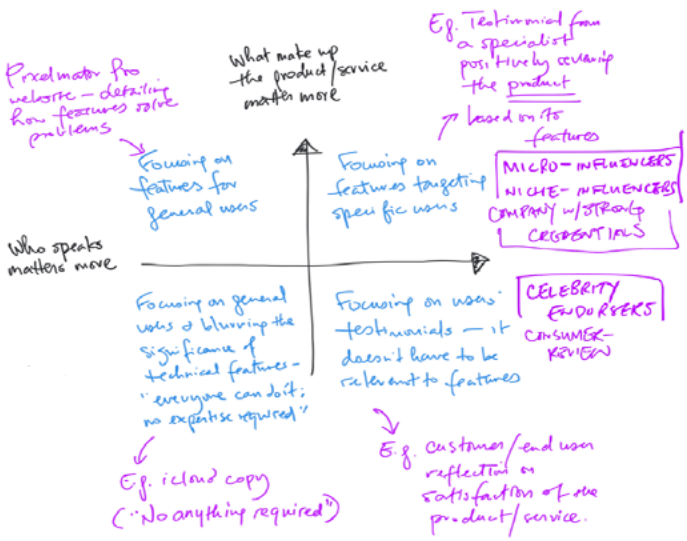 Pixelmator Pro
website – detailing
how features solve
problems
What make up
the product/service
matter more
E.g. Testimonial from
a specialist
positively reviewing
the product
based on its
features
Focusing on
features for
general users
Focusing on
features targeting
specific users
MICRO-INFLUENCERS
NICHE-INFLUENCERS
COMPANY w/STRONG
CREDENTIALS
Who speaks
matters more
Focusing on general
users & blurring the
significance of
technical features –
"everyone can do it;
no expertise required"
Focusing on users'
testimonials – it
doesn't have to be
relevant to features
CELEBRITY
ENDORSERS
CONSUMER-
REVIEW
E.g. icloud copy
("No anything required")
E.g. customer/end user
reflection on
satisfaction of the
product/service.